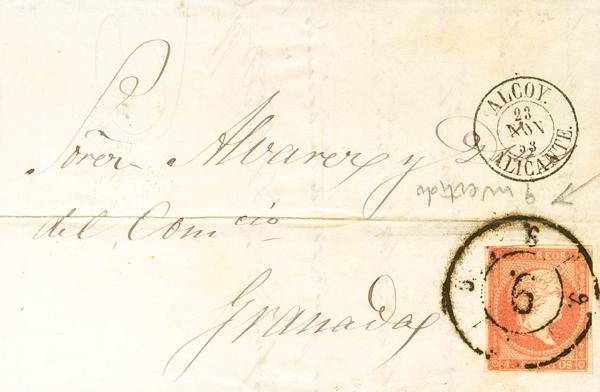 Sres. Alvarez y Ca
del Comcio
Granada
ALCOY.
23
NOV
53
ALICANTE.
9 invertido
CORREOS
9
4 CUARTOS